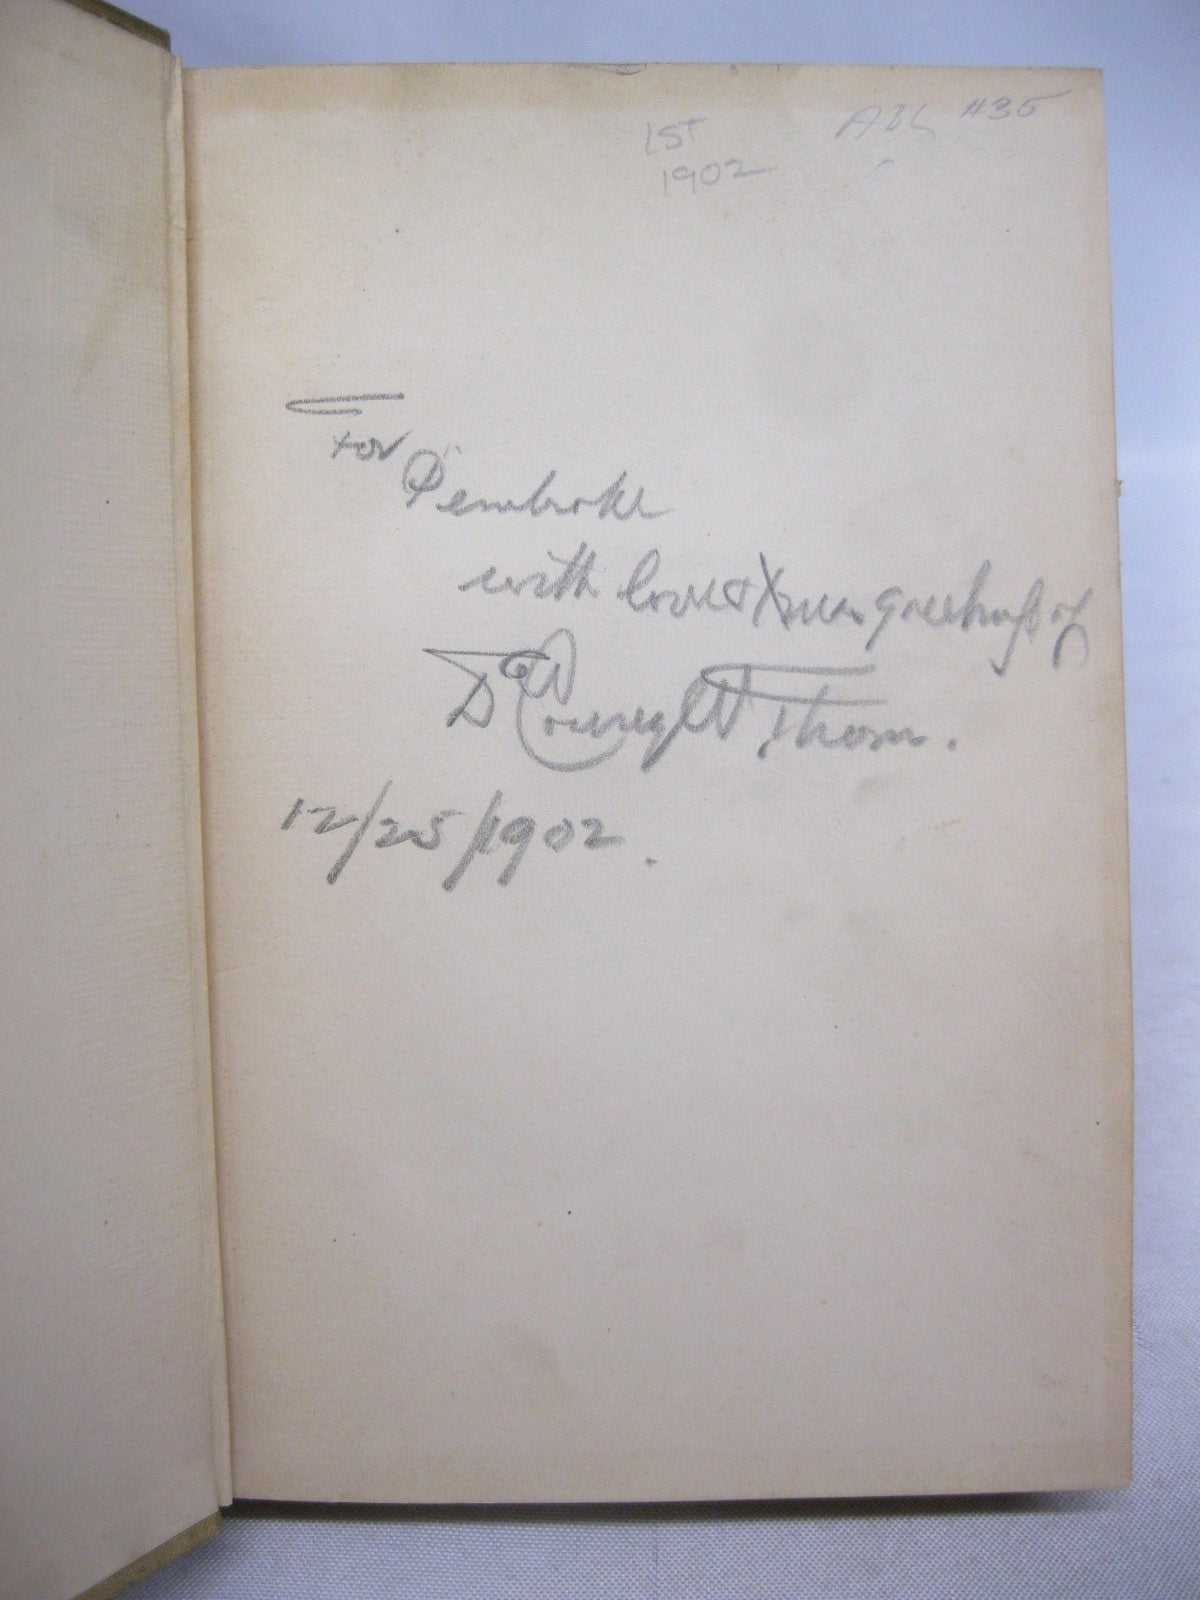 1ST
1902
ABL #35
For Pembroke
with love & Xmas greetings of
DeCourcy W Thom.
12/25/1902.